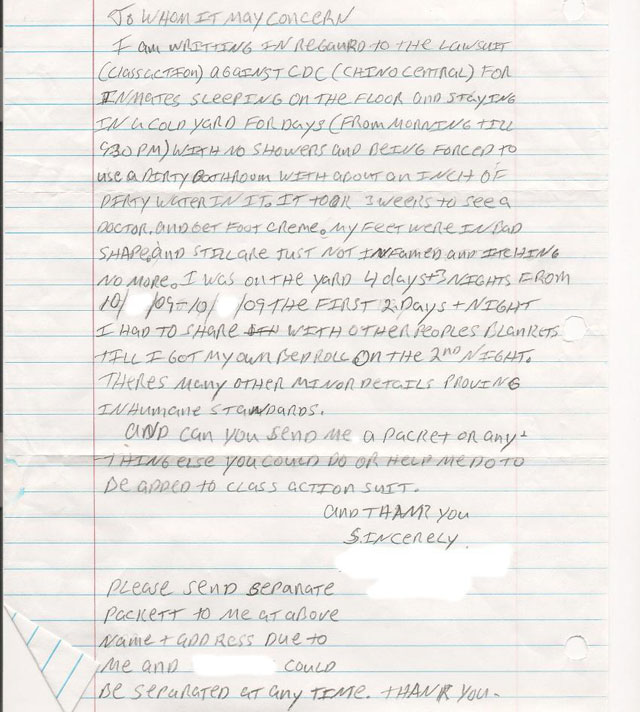 To Whom It May Concern
I am writing in regaurd to the lawsuit
(class action) against CDC (Chino Central) for
inmates sleeping on the floor and staying
in a cold yard for days (from morning till
930 PM) with no showers and being forced to
use a dirty bathroom with about an inch of
dirty water in it. It took 3 weeks to see a
doctor. and get foot creme. My feet were in bad
shape. and still are just not infamed and itching
no more. I was on the yard 4 days + 3 nights from
10/ /09-10/ /09 the first 2 days + night
I had to share with other peoples blankets
till I got my own bedroll on the 2nd night.
Theres many other minor details proving
inhumane standards.
and can you send me a packet or any-
thing else you could do or help me do to
be added to class action suit.
and thank you
Sincerely
Please send separate
packett to me at above
name + address due to
me and could
be separated at any time. Thank you.